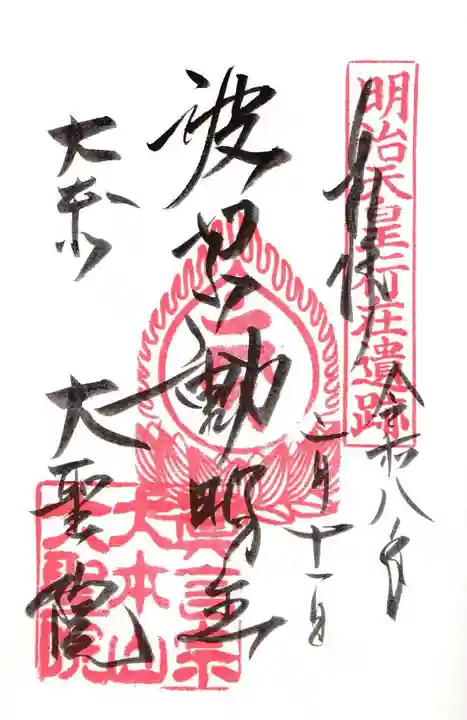 明治天皇行在遺跡
奉拝
令和八年
二月十一日
波切不動明王
大本山
大聖院
真言宗
大本山
大聖院